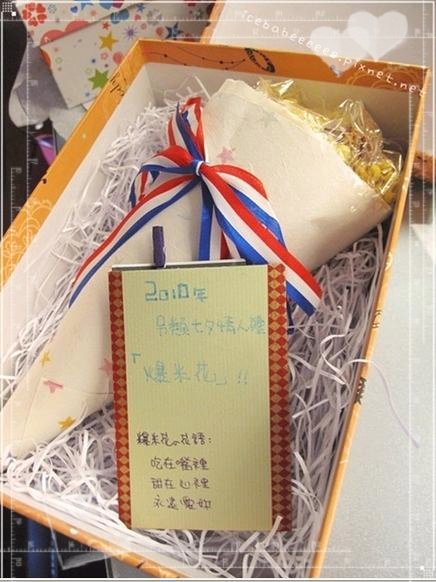 nicebabeeeees.pixnet.net
2010年
另類七夕情人禮
「爆米花」!!
爆米花の花語:
吃在嘴裡
甜在心裡
永遠愛妳